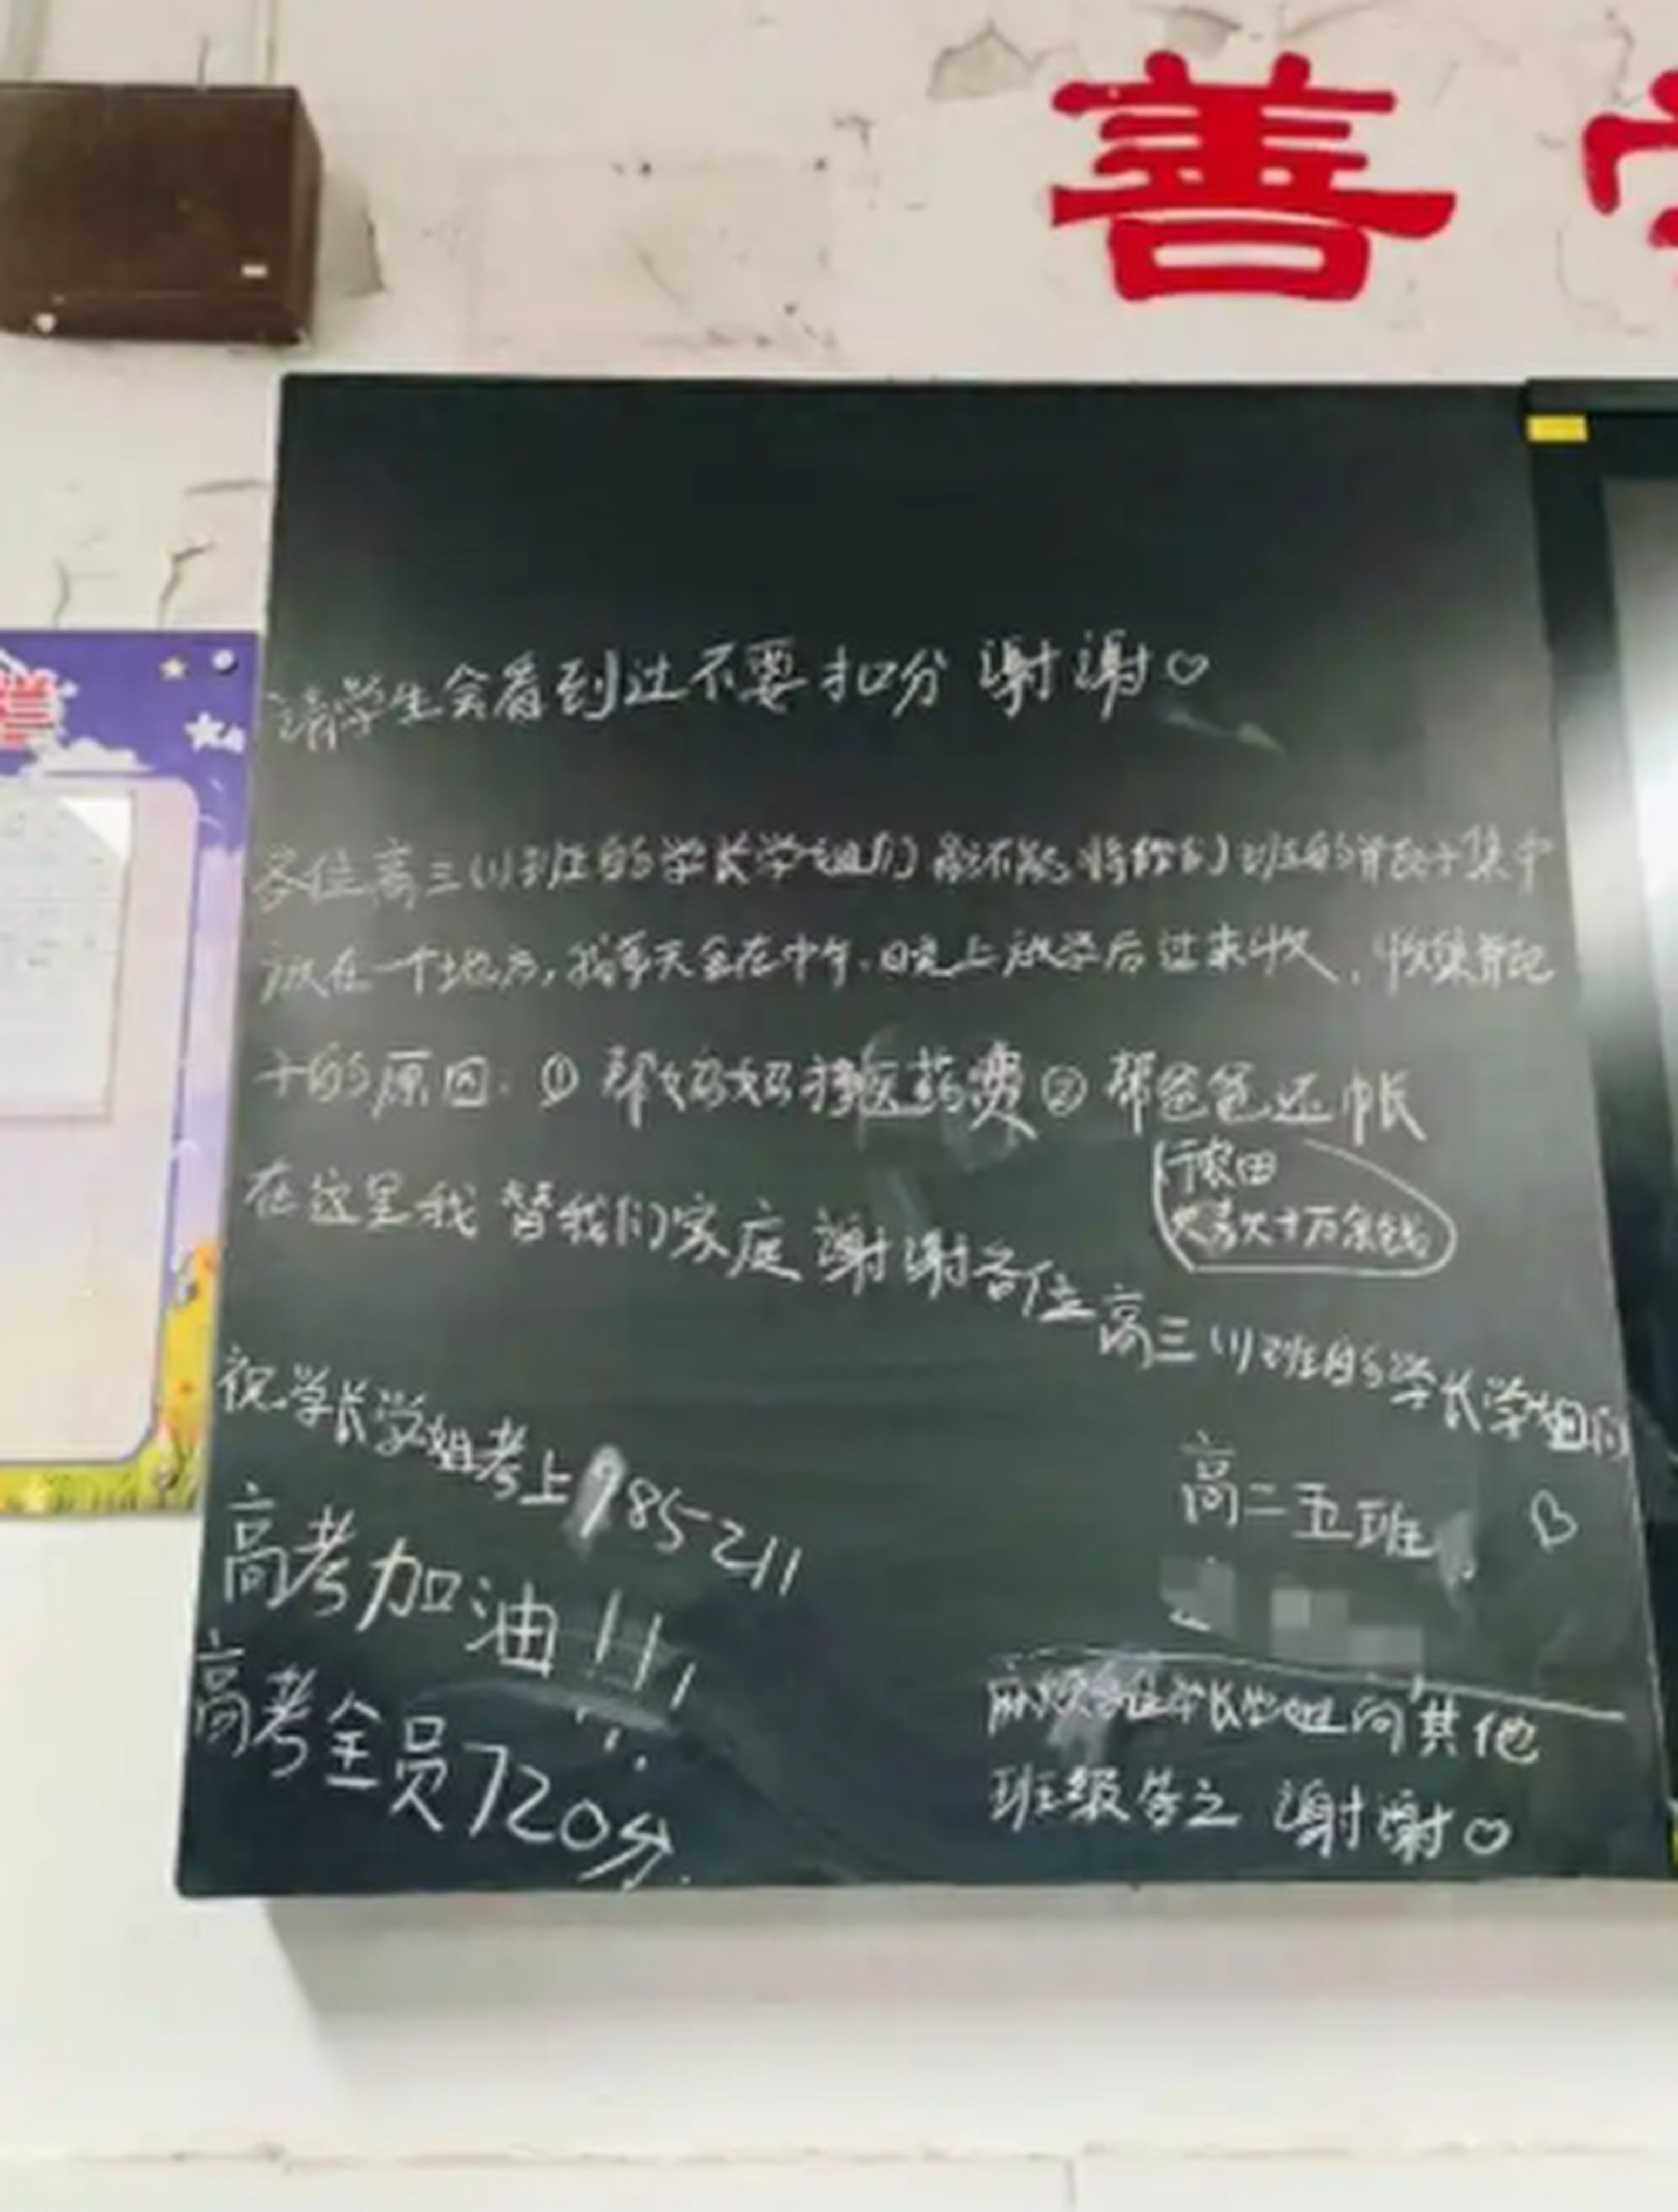 善
请学生会看到过不要扣分 谢谢♡
各位高三(1)班的学长学姐们能不能将你们班的草配子集中
放在一个地方,我每天会在中午、晚上放学后过来收,收集草配
子的原因:① 帮妈妈挣医药费② 帮爸爸还帐
欠十万余钱
在这里我替我们家庭谢谢各位高三(1)班的学长学姐们
祝学长学姐考上985211
高二五班 ♡
高考加油!!!
高考全员720分.
麻烦各位学长学姐向其他
班级告之 谢谢♡